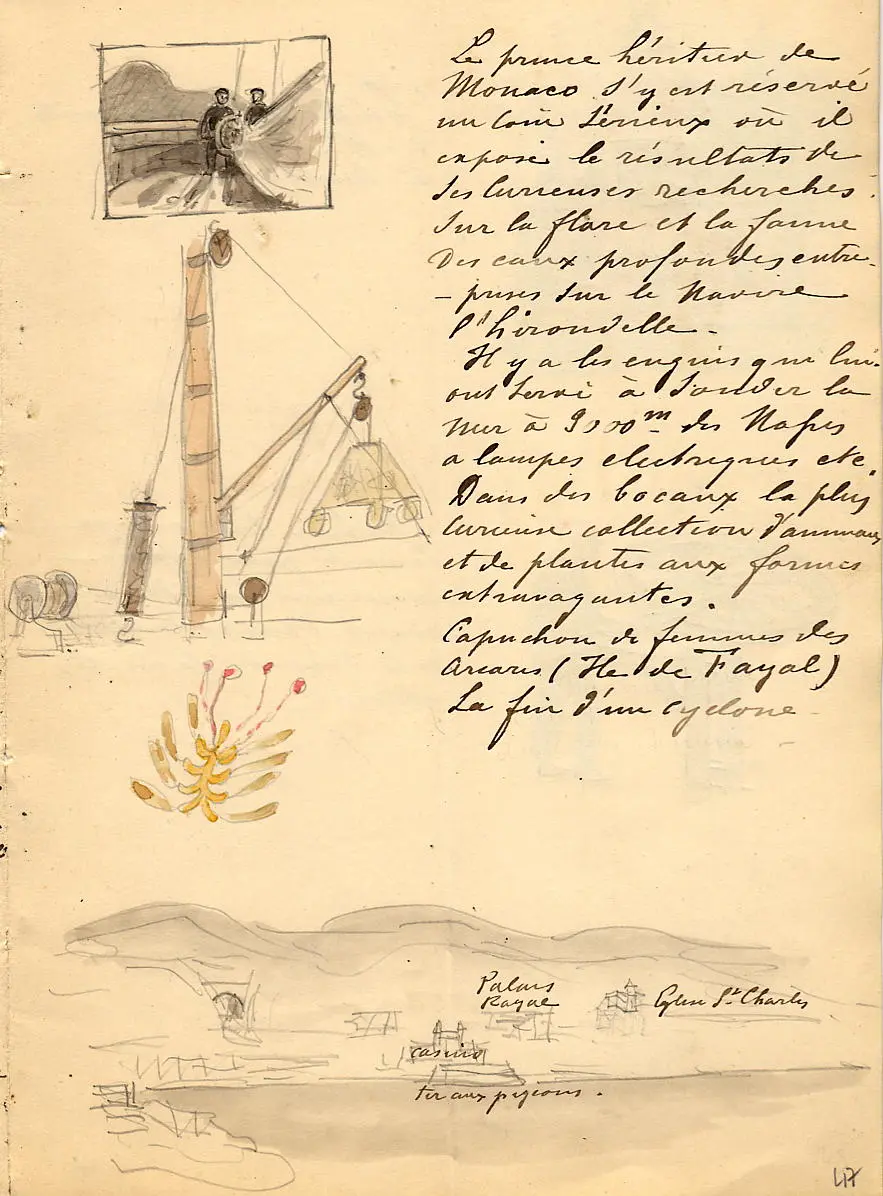 Le prince héritier de
Monaco s'y est réservé
un coin sérieux où il
expose le résultats de
ses curieuses recherches
sur la flore et la faune
des eaux profondes entre-
- prises sur le Navire
l'hirondelle -
Il y a les engins que lui
ont servi à sonder la
mer à 9000m des Nasses
a lampes electriques etc.
Dans des bocaux la plus
curieuse collection d'animaux
et de plantes aux formes
extravagantes.
Capuchon de femmes des
Acores (Ile de Fayal)
La fin d'un cyclone -
Palais
Royal
Eglise St Charles
casino
tir aux pigeons.
47